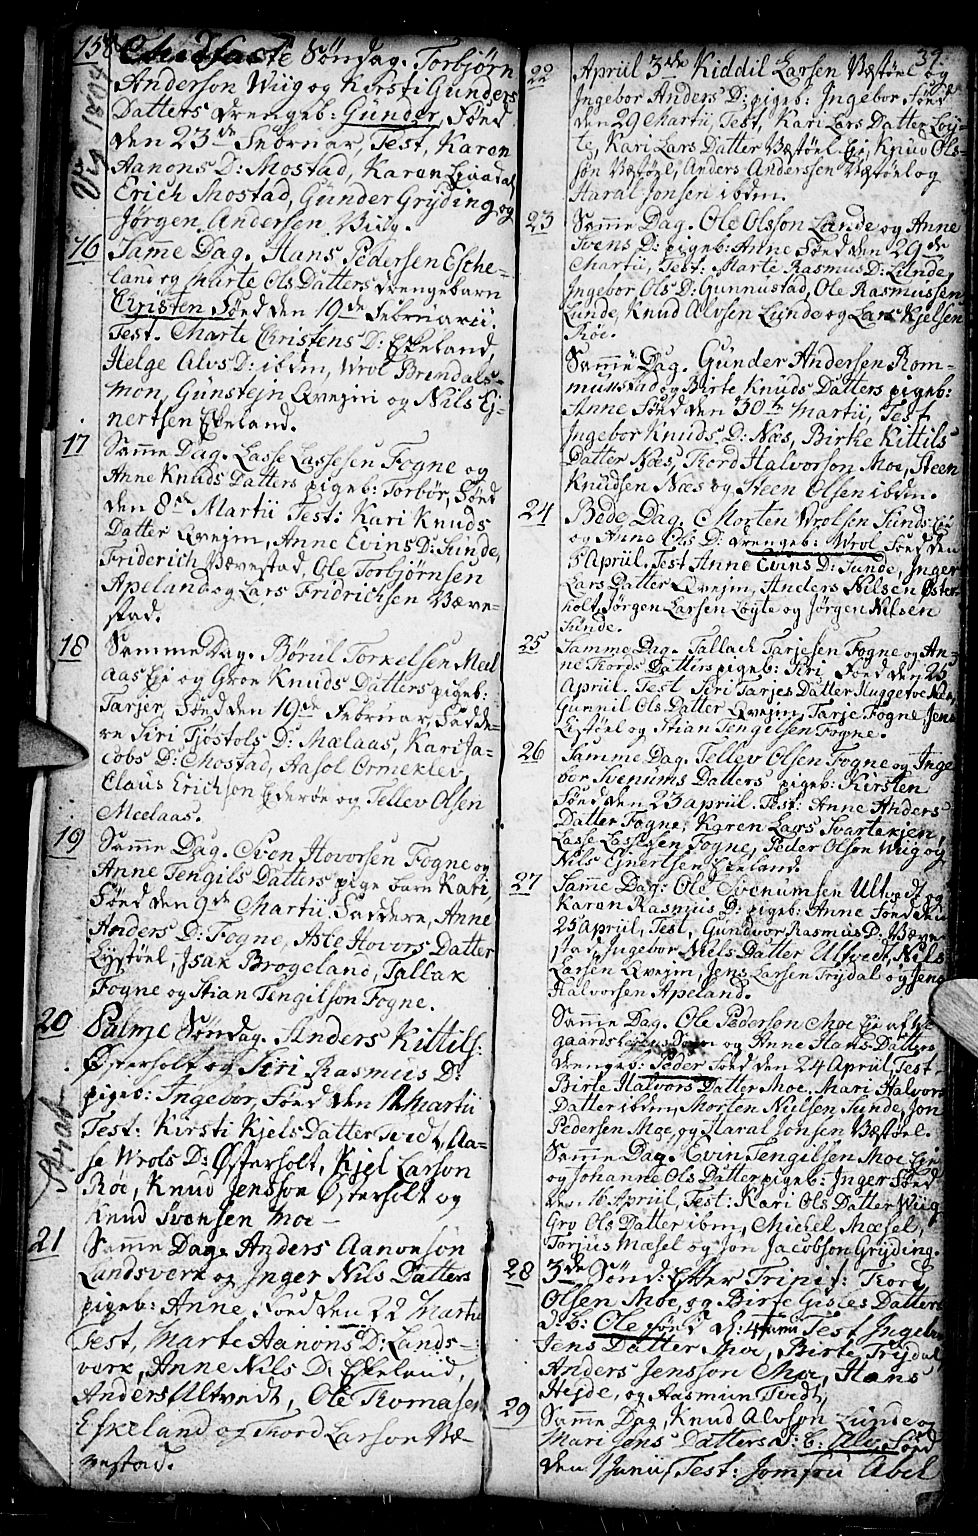 158
Midfaste Søndag. Torbjørn
Anderson Wiig og Kirsti Gunders
Datters drengeb: Gunder, Fød
den 23de Februar, Test, Karen
Aanons D: Mostad, Karen
Erich Mostad, Gunder Gryding og
Jørgen Andersen Viig.
16
Samme Dag. Hans Pedersen Esche-
land og Marte Ols Datters drengebarn
Christen Fød den 19de Februarii.
Test. Marte Christens D: Ekeland,
Helge Alvs D: ibdm, Wrol Brendals-
mon, Günstejn Qvejm og Nils Ej-
nertsen Ekeland.
17
Samme Dag. Lasse Lassesen Fogne og
Anne Knuds Datters pigeb: Torbør, Fød
den 8de Martii Test: Kari Knuds
Datter Qvejm, Anne Evins D: Sunde,
Friderich Bævestad, Ole Torbjørnsen
Apeland og Lars Fridrichsen Bæve-
stad.
18
Samme Dag. Børul Torkelsen Mæl
aas Eje og Groe Knuds Datters pigeb:
Tarjer, Fød den 19de Februar, Fadde-
re Siri Tjostols D: Mælaas, Kari Ja-
cobs D: Mostad, Aasol Ormeklev,
Claus Erichson Ederøe og Tellev Olsen
Meelaas.
19
Samme Dag. Sven Hovorsen Fogne og
Anne Tengils Datters pige barn Kari,
Fød den 9de Martii, Faddere, Anne
Anders D: Fogne, Asle Hovors Datter
Lystøel, Isak Brogeland, Tallak
Fogne og Stian Tengilson Fogne.
20
Palme Søndag. Anders Kittils:
Østerholt og Siri Rasmus D:
pigeb: Ingebor, Fød den 12 Martii
Test: Kirsti Kjels Datter Tvedt, Aa-
se Wrols D: Østerholt, Kjel Larson
Roe, Knud Jensson Østerholt og
Knud Svensen Moe
21
Samme Dag. Anders Aanonson
Landsverk og Inger Nils Datters
pigeb: Anne, Fød den 22 Martii
Test, Marte Aanons D: Lands-
verk, Anne Nils D: Ekeland,
Anders Ultvedt, Ole Thomasen
Eskeland og Tord Larson Væ-
vestad.
39.
22
Apriil 3de Kiddil Larsen Væstøl og
Ingebor Anders D: pigeb: Ingebor Fød
den 29 Martii, Test, Kari Lars Datter Løy-
te, Kari Lars Datter Væstøl Ej, Knud Ols-
søn Væstøl, Anders Anderssen Væstøel og
Haral Jonsen ibdm.
23
Samme Dag. Ole Olsson Lunde og Anne
Svens D: pigeb: Anne Fød den 29de
Martii, Test: Marte Rasmus D: Lunde,
Ingebor Ols D: Gunnustad, Ole Rasmussen
Lunde, Knud Alvsen Lunde og Lars Kjelsen
Roe.
Samme Dag. Gunder Andersen Rom-
mundstad og Birte Knuds Datters pigeb:
Anne Fød den 30te Martii, Test
Ingebor Knuds D: Næs, Birte Kittils
Datter Næs, Tord Halvorson Moe, Steen
Knudsen Næs og Steen Olsen ibdm.
24
Bede Dag. Morten Wrolsen Sunds Eje
og Anne Ols D: drengeb: Wrol Fød den
Apriil, Test Anne Evins D: Sunde, Inger
Lars Datter Qvejm, Anders Nilsen Øster-
holt, Jørgen Larsen Løyte og Jørgen Nilsen
Sunde.
25
Samme Dag. Tallach Tarjesen Fogne og An-
ne Tords Datters pigeb: Siri Fød den 25
Apriil. Test Siri Tarjes Datter
Gunnil Ols Datter Qvejm, Tarje Fogne, Jens
Lystøel og Stian Tengilsen Fogne.
26
Samme Dag. Tellev Olsen Fogne og Inge
bor Svenums Datters pigeb: Kirsten
Fød den 23 april. Test: Anne Anders
Datter Fogne, Karen Lars Svartekjen,
Lasse Lassesen Fogne, Peder Olson Wiig og
Nils Ejnertsen Ekeland.
27
Samme Dag: Ole Svenumsen Ultvedt og
Karen Rasmus D: pigeb: Anne Fød den
25 april, Test, Gundvor Rasmus D: Bæve
stad, Ingebor Niels Datter Ultvedt, Nils
Larsen Qvejm, Jens Larsen Trydal og Jens
Halvorsen Apeland.
Samme Dag. Ole Pedersen Moe Eje af
gaards og Anne Hans Datters
drengeb: Peder Fød den 24 April, Test
Birte Halvors Datter Moe, Mari Halvors
Datter ibdm, Morten Nielsen Sunde, Jon
Pedersen Moe, og Haral Jonsen Væstøel.
Samme Dag. Evin Tengilsen Moe Eje
og Johanne Ols Datter pigeb: Inger Fød
den 16 April, Test: Kari Ols Datter Wiig
Gro Ols Datter ibm, Michel Mæsel,
Torjus Mæsel og Jon Jacobson Gryding.
28
3de Sønd: Efter Trinit: Tord
Olsen Moe, og Birte Gisles Datters
d: b: Ole Fød d: 4 Test Ingebor
Jens Datter Moe, Birte Trydal
Anders Jensson Moe, Hans
Hejde, og Aasmun Tvedt,
29
Samme Dag, Knud Alvson Lunde og
Mari Jens Datters d: b: Fød
den 1 Junii Test: Jomfru Abel